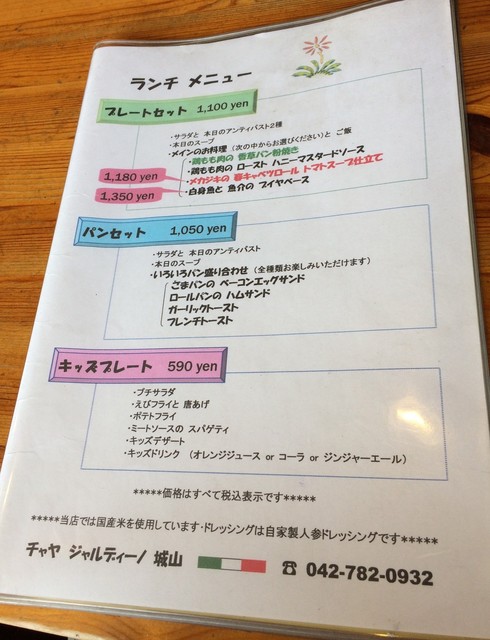 ランチ メニュー
プレートセット 1,100 yen
・サラダと 本日のアンティパスト2種
・本日のスープ
・メインのお料理 (次の中からお選びください) と ご飯
・鶏もも肉の 香草パン粉焼き
・鶏もも肉の ロースト ハニーマスタードソース
1,180 yen ・メカジキの 春キャベツロール トマトスープ仕立て
1,350 yen ・白身魚と 魚介の ブイヤベース
パンセット 1,050 yen
・サラダと 本日のアンティパスト
・本日のスープ
・いろいろパン盛り合わせ (全種類お楽しみいただけます)
ごまパンの ベーコンエッグサンド
ロールパンの ハムサンド
ガーリックトースト
フレンチトースト
キッズプレート 590 yen
・プチサラダ
・えびフライと 唐あげ
・ポテトフライ
・ミートソースの スパゲティ
・キッズデザート
・キッズドリンク (オレンジジュース or コーラ or ジンジャーエール)
*****価格はすべて税込表示です*****
*****当店では国産米を使用しています・ドレッシングは自家製人参ドレッシングです*****
チャヤ ジャルディーノ 城山 ☎ 042-782-0932